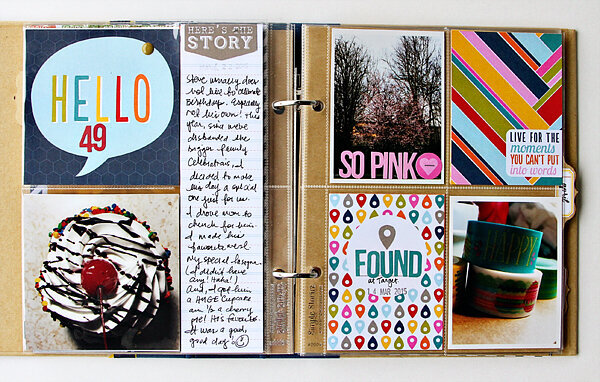 HELLO
49
HERE'S THE
STORY
Steve usually does
not like to celebrate
Birthdays. Especially
not his own! This
year, since we've
disbanded the
bigger family
celebrations, I
decided to make
his day a special
one just for us.
I drove mom to
church for him.
I made his
favorite meal
my special lasagna.
(I didn't have
any! Haha!)
And, I got him
a HUGE Cupcake
and 1/2 a cherry
pie! His favorites.
It was a good,
good day!
SO PINK
LIVE FOR THE
moments
YOU CAN'T PUT
into words
FOUND
at Target
14 MAR 2015